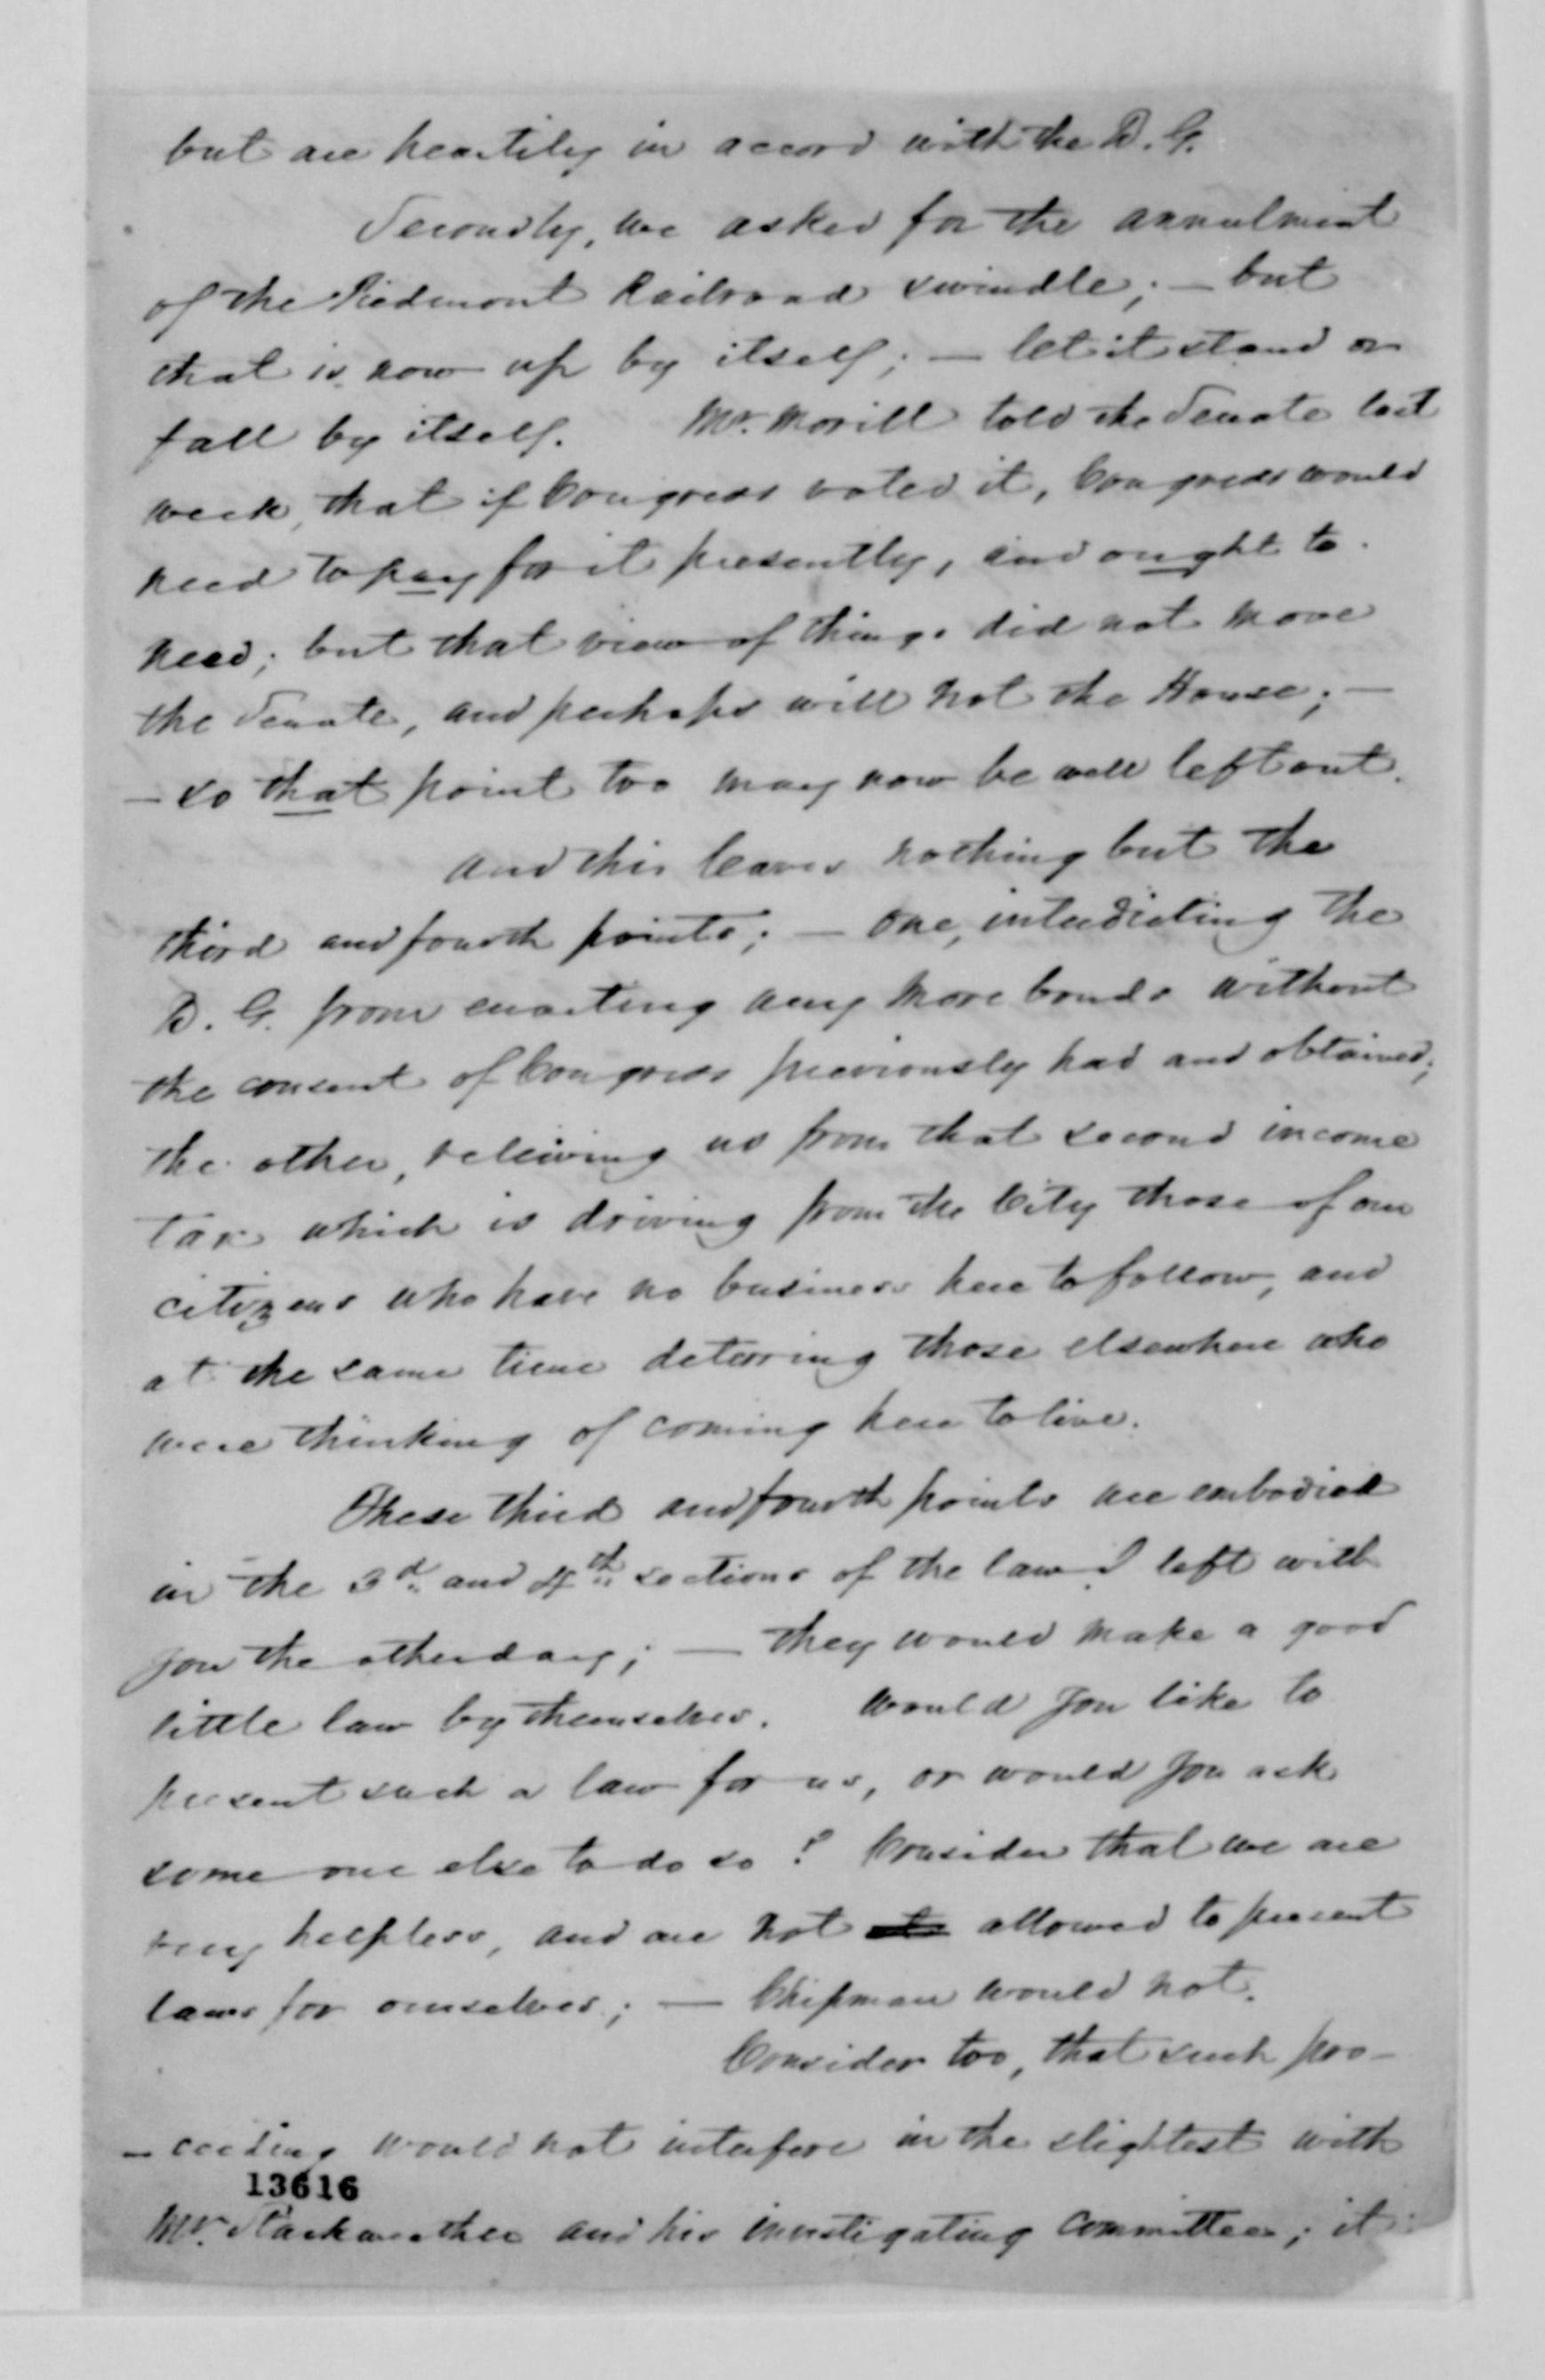 but are heartily in accord with the D. G.
Secondly, we asked for the annulment
of the Piedmont Railroad swindle; — but
that is now up by itself; — let it stand or
fall by itself. Mr. Morill told the Senate last
week, that if Congress voted it, Congress would
need to pay for it presently, and ought to
need; but that view of things did not move
the Senate, and perhaps will not the House; —
— so that point too may now be well left out.
And this leaves nothing but the
third and fourth points; — One, interdicting the
D. G. from enacting any more bonds without
the consent of Congress previously had and obtained;
the other, relieving us from that second income
tax which is driving from the City those of our
citizens who have no business here to follow, and
at the same time deterring those elsewhere who
were thinking of coming here to live.
These third and fourth points are embodied
in the 3d and 4th sections of the law I left with
you the other day; — they would make a good
little law by themselves. Would you like to
present such a law for us, or would you ask
some one else to do so? Consider that we are
very helpless, and are not allowed to present
laws for ourselves; — Chipman would not.
Consider too, that such pro-
- ceeding would not interfere in the slightest with
13616
Mr. Starkweather and his investigating Committee; it